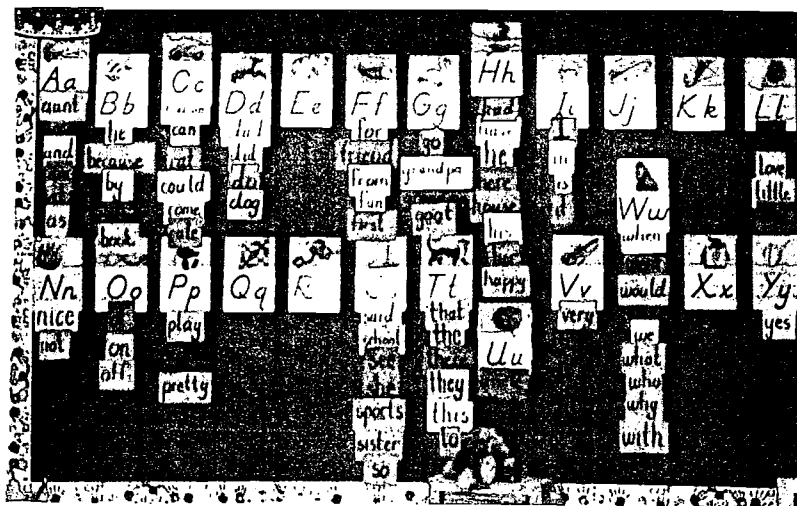 Aa
aunt
and
as
Bb
be
because
by
book
Cc
can
cat
could
come
Dd
dad
did
do
dog
Ee
Ff
for
friend
from
fun
first
Gg
go
grandpa
goat
Hh
had
have
he
here
house
his
happy
Ii
I
in
is
it
Jj
Kk
Ll
love
little
Nn
nice
not
Oo
on
off
Pp
play
pretty
Qq
R
said
school
see
she
sports
sister
so
Tt
that
the
there
they
this
to
Uu
Vv
very
Ww
when
would
we
what
who
why
with
Xx
Yy
yes